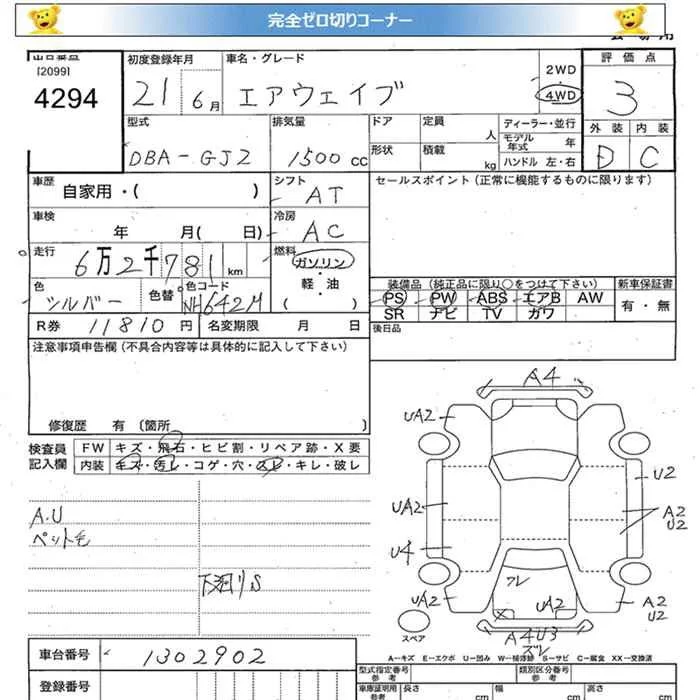 完全ゼロ切りコーナー
[2099]
4294
初度登録年月
21 6月
車名・グレード
エアウェイブ
2WD
4WD
評価点
3
型式
DBA-GJ2
排気量
1500 cc
ドア
形状
定員
人
積載
kg
ディーラー・並行
モデル年式 年
ハンドル 左・右
外装 内装
D C
車歴
自家用・( )
シフト
AT
セールスポイント (正常に機能するものに限ります)
車検
年 月( 日)
冷房
AC
走行
6万2千781 km
燃料
ガソリン
軽・油
( )
色
シルバー
色替
色コード
NH642M
装備品 (純正品に限り○をつけて下さい)
新車保証書
PS PW ABS エアB AW
SR ナビ TV カワ
有・無
R券 11810 円
名変期限 月 日
後日品
注意事項申告欄 (不具合内容等は具体的に記入して下さい)
修復歴 有 〔箇所 〕
検査員記入欄
FW キズ・飛石・ヒビ割・リペア跡・X要
内装 キズ・汚レ・コゲ・穴・スレ・キレ・破レ
A.U
ペット毛
下廻りS
A4
UA2
UA2
U4
UA2
U2
A2
U2
A2
U2
UA2
X
A4U3
スペア
A-キズ E-エクボ U-凹み W-補修跡 S-サビ C-腐食 XX-交換済
車台番号
1302902
登録番号
型式指定番号
参考
類別区分番号
参考
車庫証明用
参考
長さ cm
幅 cm
高さ cm